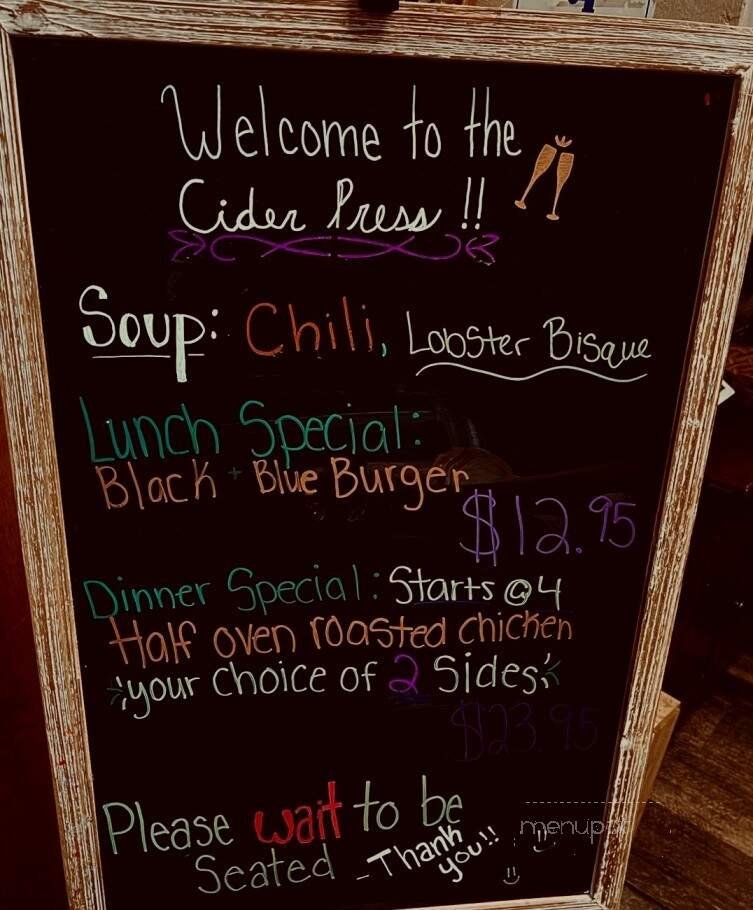 Welcome to the
Cider Press !!
Soup: Chili, Lobster Bisque
Lunch Special:
Black + Blue Burger
$12.95
Dinner Special: Starts @4
Half oven roasted chicken
your choice of 2 Sides
$23.95
Please wait to be
Seated - Thank
you!!